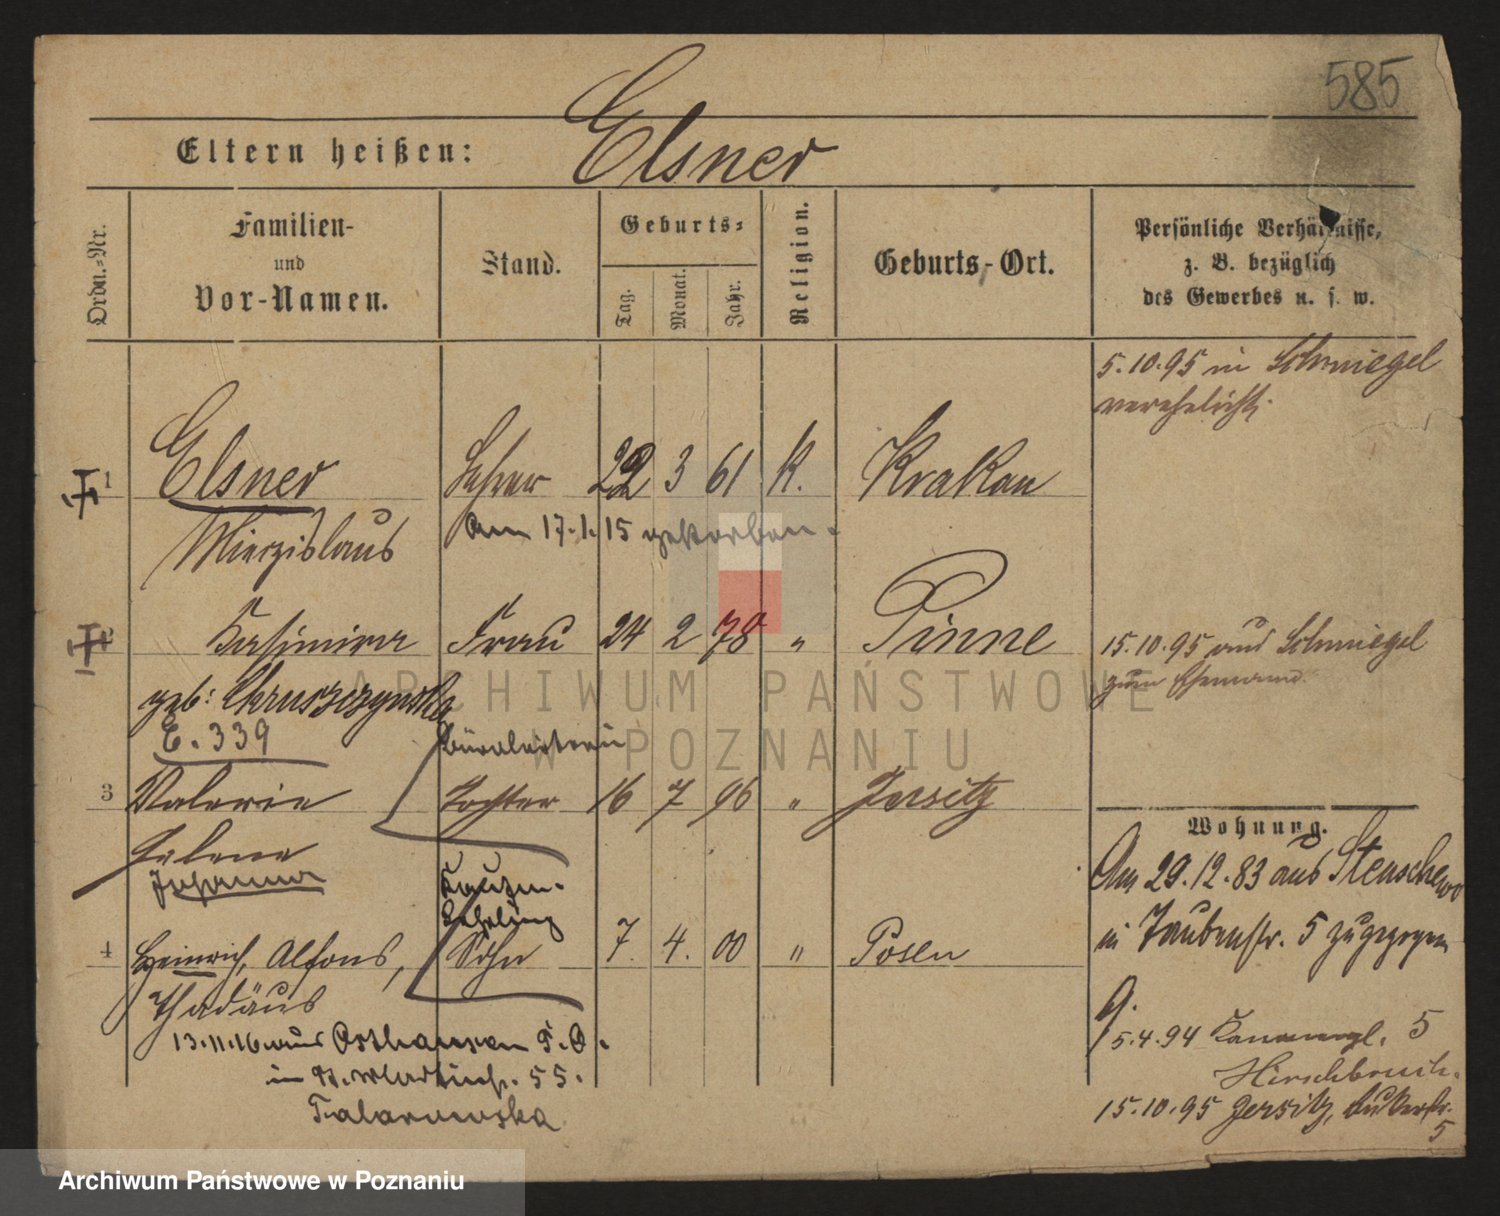 585
Eltern heißen: Elsner
Ordn.-Nr.
Familien- und Vor-Namen.
Stand.
Geburts-
Tag.
Monat.
Jahr.
Religion.
Geburts-Ort.
Persönliche Verhältnisse, z. B. bezüglich des Gewerbes u. s. w.
5.10.95 in Schmiegel
verehelicht.
1 Elsner Lehrer 22 3 61 K. Krakau
Am 17.1.15 gestorben.
Mierzislaus
2 Kasimira Frau 24 2 78 " Pinne
15.10.95 aus Schmiegel
zum Ehemann.
geb: Chruszczynska
E. 339
3 Valerie Tochter 16 7 96 " Jersitz
Helene
Johanna
Wohnung.
Am 29.12.83 aus Stenschewo
in Taubenstr. 5 zugezogen
4 Heinrich, Alfons, Sohn 7. 4. 00 " Posen
Thadäus
13.11.16 aus Osthausen
in St. Martinstr. 55.
5.4.94 5
15.10.95 Jersitz,
5
ARCHIWUM PAŃSTWOWE
W POZNANIU
Archiwum Państwowe w Poznaniu